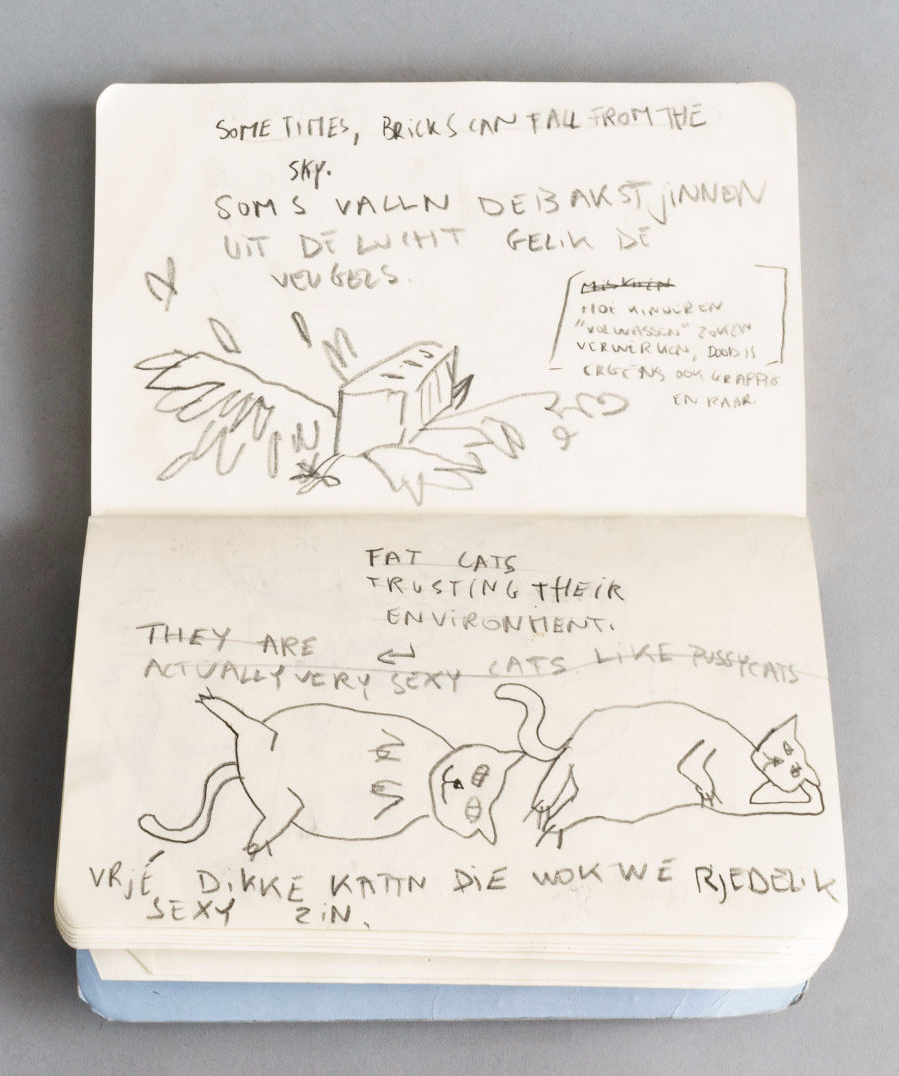 SOMETIMES, BRICKS CAN FALL FROM THE
SKY.
SOMS VALLN DE BAKSTJINNEN
UIT DE LUCHT GELIK DE
VEUGELS.
HOE KINDEREN
"VOLWASSEN" ZAKEN
VERWERKEN, DOOD IS
ERGENS OOK GRAPPIG
EN RAAR
FAT CATS
TRUSTING THEIR
ENVIRONMENT.
THEY ARE
ACTUALLY VERY SEXY CATS LIKE PUSSYCATS
VRJÉ DIKKE KATTN DIE WOK WE RJEDELIK
SEXY ZIN.